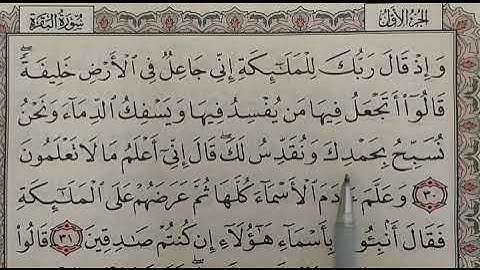 الجزء الأول
سورة البقرة
وَإِذْ قَالَ رَبُّكَ لِلْمَلَـٰٓئِكَةِ إِنِّى جَاعِلٌ فِى ٱلْأَرْضِ خَلِيفَةً ۖ
قَالُوٓا۟ أَتَجْعَلُ فِيهَا مَن يُفْسِدُ فِيهَا وَيَسْفِكُ ٱلدِّمَآءَ وَنَحْنُ
نُسَبِّحُ بِحَمْدِكَ وَنُقَدِّسُ لَكَ ۖ قَالَ إِنِّىٓ أَعْلَمُ مَا لَا تَعْلَمُونَ
٣٠ وَعَلَّمَ ءَادَمَ ٱلْأَسْمَآءَ كُلَّهَا ثُمَّ عَرَضَهُمْ عَلَى ٱلْمَلَـٰٓئِكَةِ
فَقَالَ أَنۢبِـُٔونِى بِأَسْمَآءِ هَـٰٓؤُلَآءِ إِن كُنتُمْ صَـٰدِقِينَ ٣١ قَالُوا۟